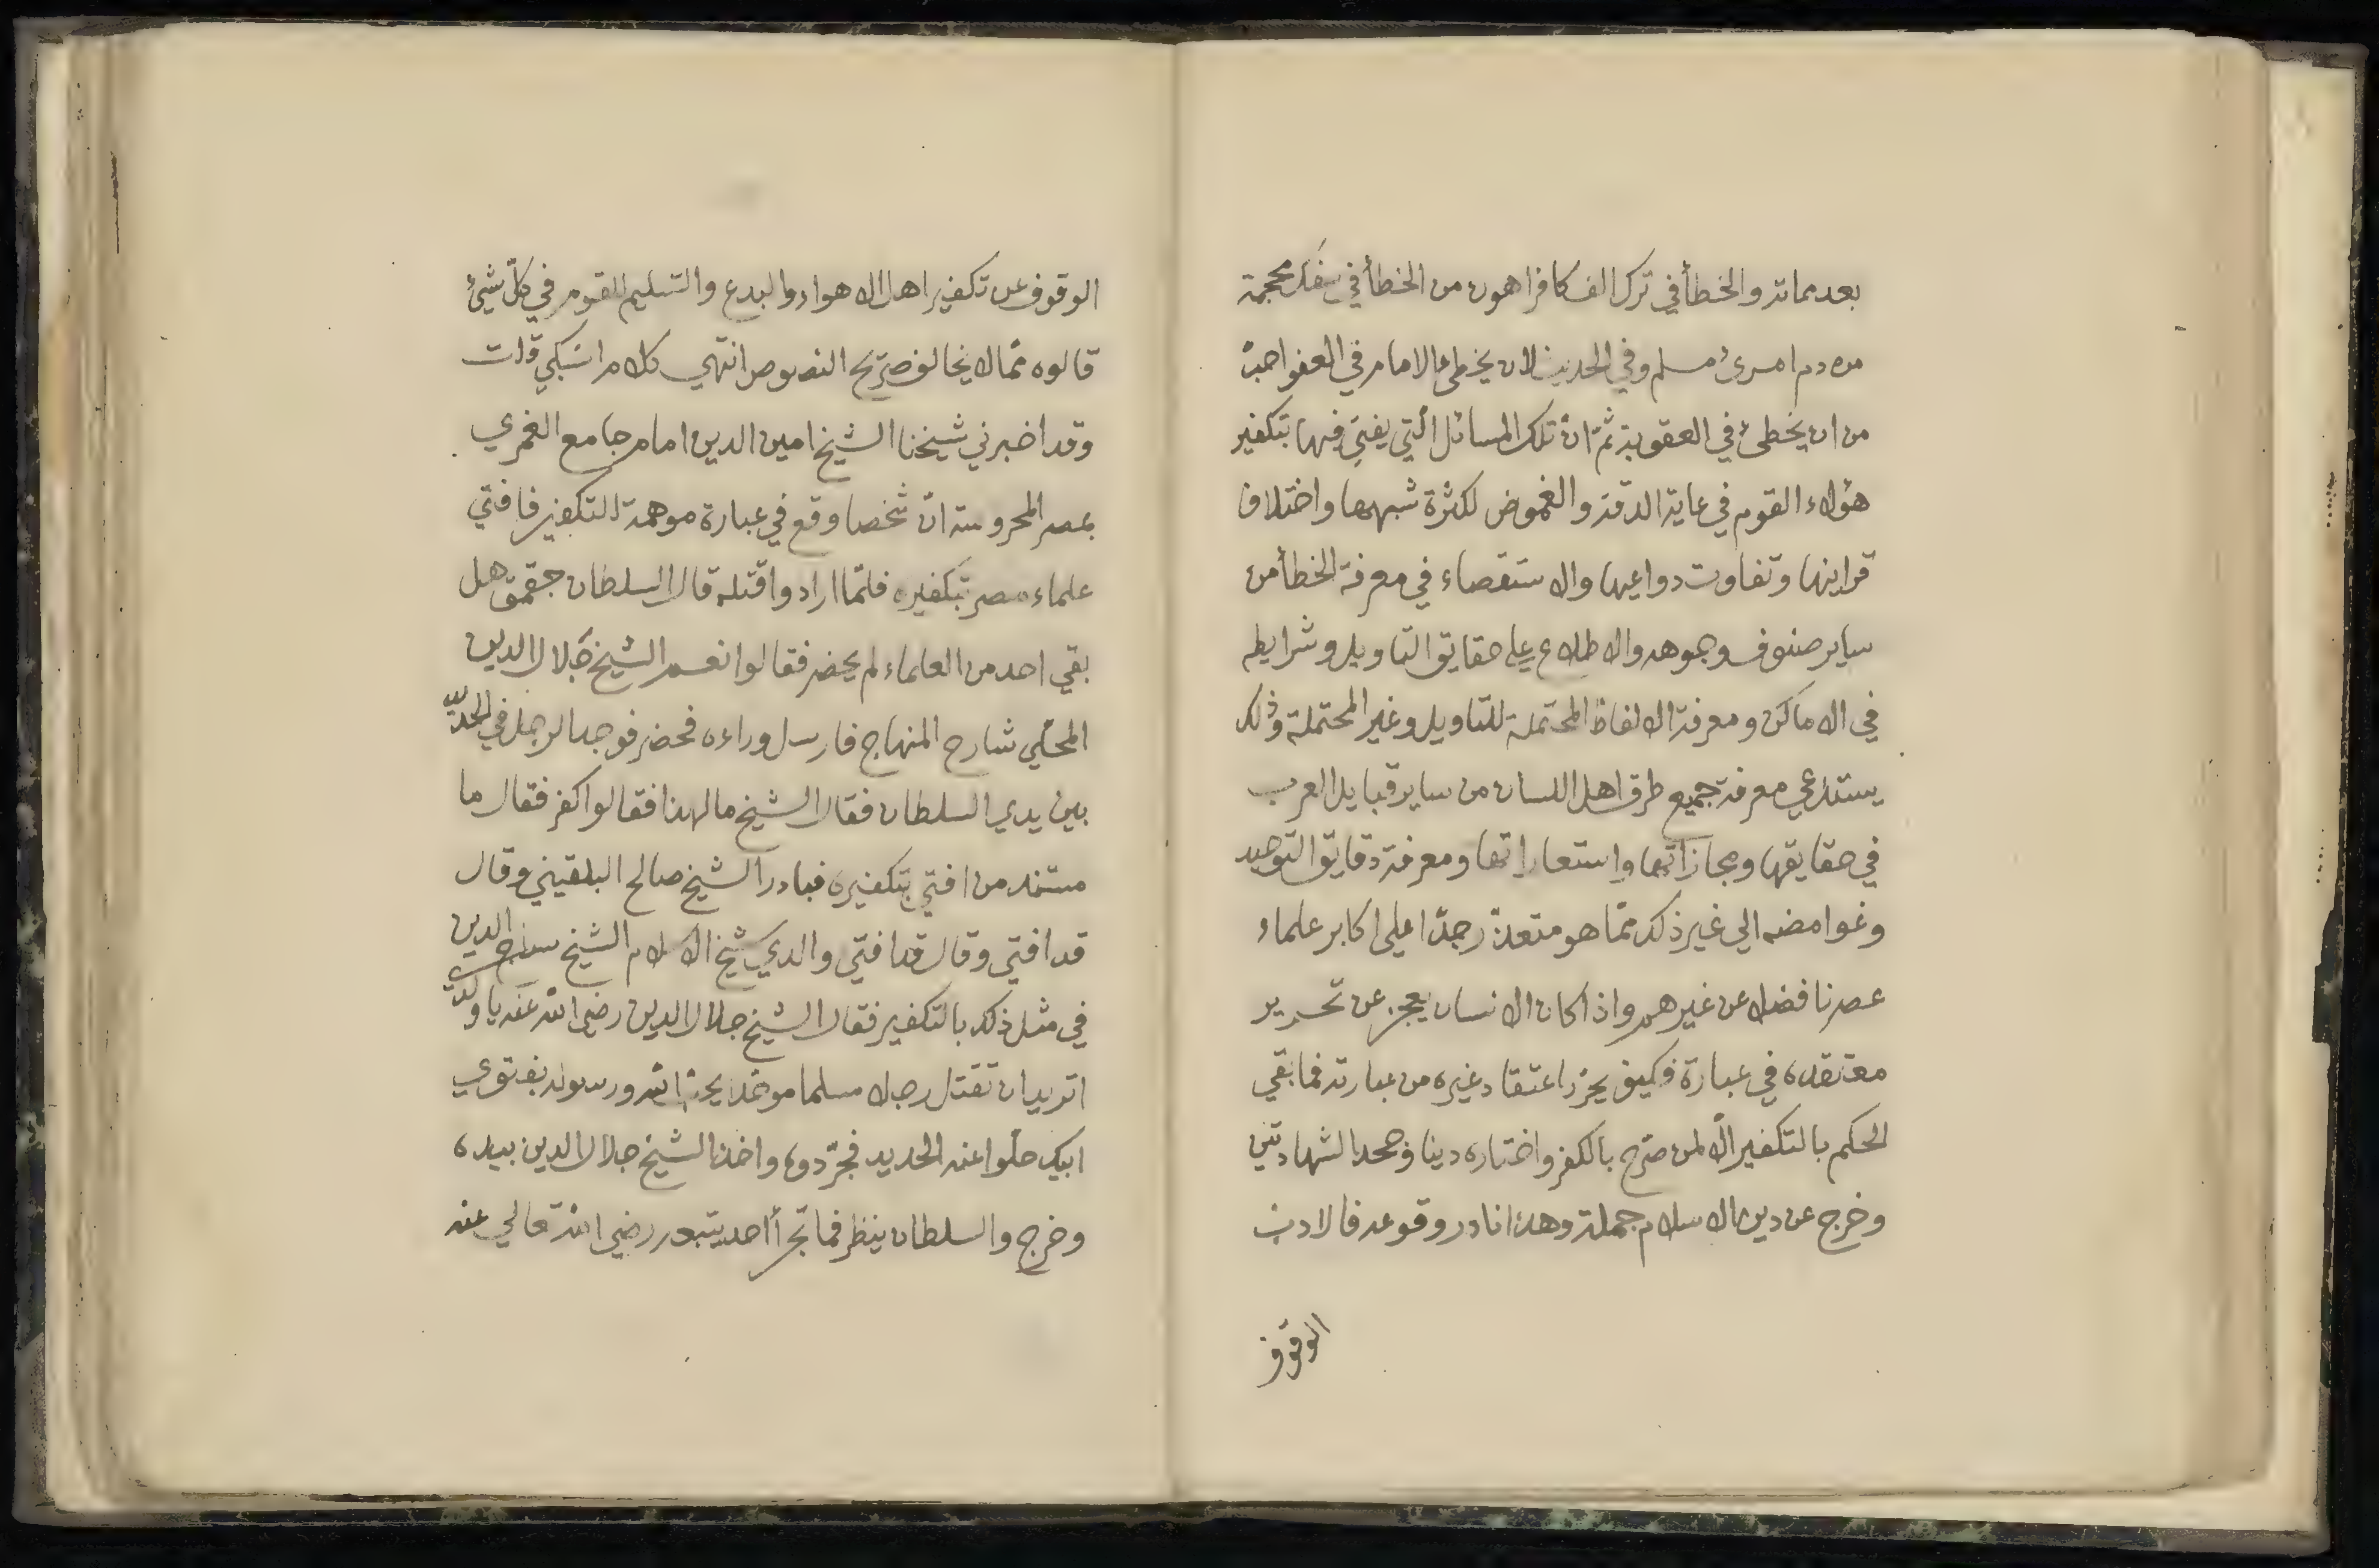 بعد مماته والخطأ في ترك الف كافر اهون من الخطأ في سفك محجمة
من دم امرئ مسلم وفي الحديث لان يخطئ الامام في العفو احبّ
من ان يخطئ في العقوبة ثمّ انّ تلك المسائل الّتي يفتي فيها بتكفير
هؤلاء القوم في غاية الدقة والغموض لكثرة شبهها واختلاف
قراينها وتفاوت دواعيها والاستقصاء في معرفة الخطأ من
ساير صنوف وجوهه والاطلاع علي حقايق التاويل وشرايطه
في الاماكن ومعرفة الالفاظ المحتملة للتاويل وغير المحتملة وذلك
يستدعي معرفة جميع طرق اهل اللسان من ساير قبايل العرب
في حقايقها ومجازاتها واستعاراتها ومعرفة دقايق التوحيد
وغوامضه الي غير ذلك ممّا هو متعذّر جدّا علي اكابر علماء
عصرنا فضلا عن غيرهم واذا كان الانسان يعجز عن تحرير
معتقده في عبارة فكيف يحرّر اعتقاد غيره من عبارته فما بقي
الحكم بالتكفير الّا لمن صرّح بالكفر واختاره دينا وجحد الشهادتين
وخرج عن دين الاسلام جملة وهذا نادر وقوعه فالادب
الوقوف
الوقوف عن تكفير اهل الاهواء والبدع والتسليم للقوم في كلّ شيئ
قالوه ممّا لا يخالف صريح النصوص انتهي كلام السبكي قلت
وقد اخبرني شيخنا الشيخ امين الدين امام جامع الغمري
بمصر المحروسة انّ شخصا وقع في عبارة موهمة للتكفير فافتي
علماء مصر بتكفيره فلمّا ارادوا قتله قال السلطان جقمق هل
بقي احد من العلماء لم يحضر فقالوا نعم الشيخ جلال الدين
المحلّي شارح المنهاج فارسل وراءه فحضر فوجد الرجل في الحديد
بين يدي السلطان فقال الشيخ ما لهذا فقالوا كفر فقال ما
مستند من افتي بتكفيره فبادر الشيخ صالح البلقيني وقال
قد افتي وقال قد افتي والدي شيخ الاسلام الشيخ سراج الدين
في مثل ذلك بالتكفير فقال الشيخ جلال الدين رضي الله عنه يا ولدي
اتريد ان تقتل رجلا مسلما موحّدا يحبّ الله ورسوله بفتوي
ابيك حلّوا عنه الحديد فجرّدوه واخذ الشيخ جلال الدين بيده
وخرج والسلطان ينظر فما تجرّأ احد يتبعه رضي الله تعالي عنه